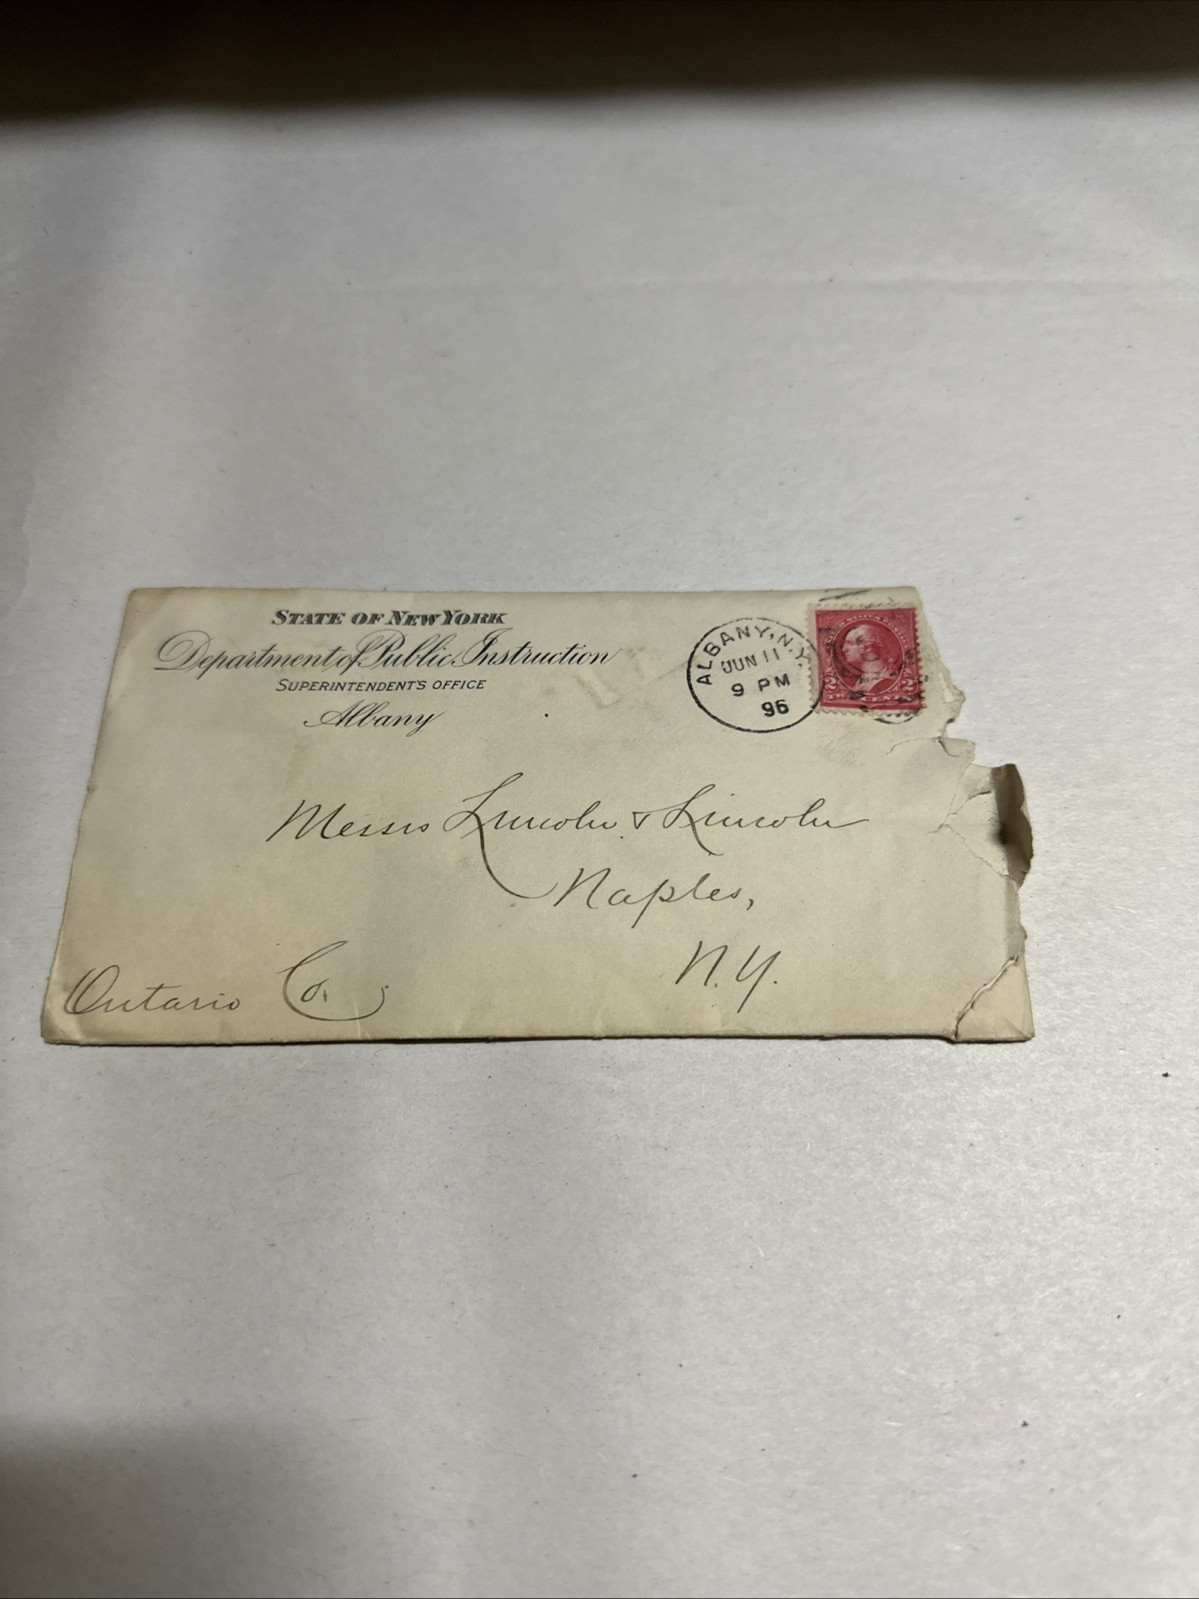 STATE OF NEW YORK
Department of Public Instruction
SUPERINTENDENT'S OFFICE
Albany
ALBANY, N.Y.
JUN 11
9 PM
96
2 2
Messrs Lincoln & Lincoln
Naples,
N.Y.
Ontario Co.